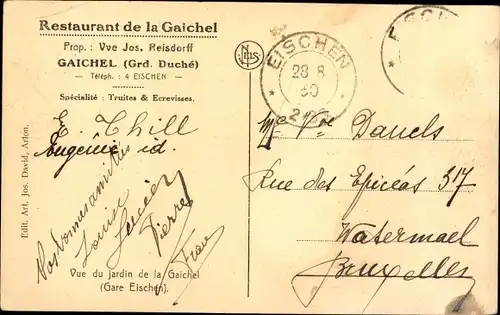 Restaurant de la Gaichel
Prop. : Vve Jos. Reisdorff
GAICHEL (Grd. Duché)
— Téléph. : 4 EISCHEN —
Spécialité : Truites & Ecrevisses.
E. Thill
Eugénie id.
Nos bonnes amitiés
Louise
Lucien
Pierre
Vue du jardin de la Gaichel
(Gare Eischen).
Edit. Art. Jos. David, Arlon.
NELS
EISCHEN
28 8
30
EISCH
Me Vve Dauels
Rue des Epicéas 37
Watermael
Bruxelles